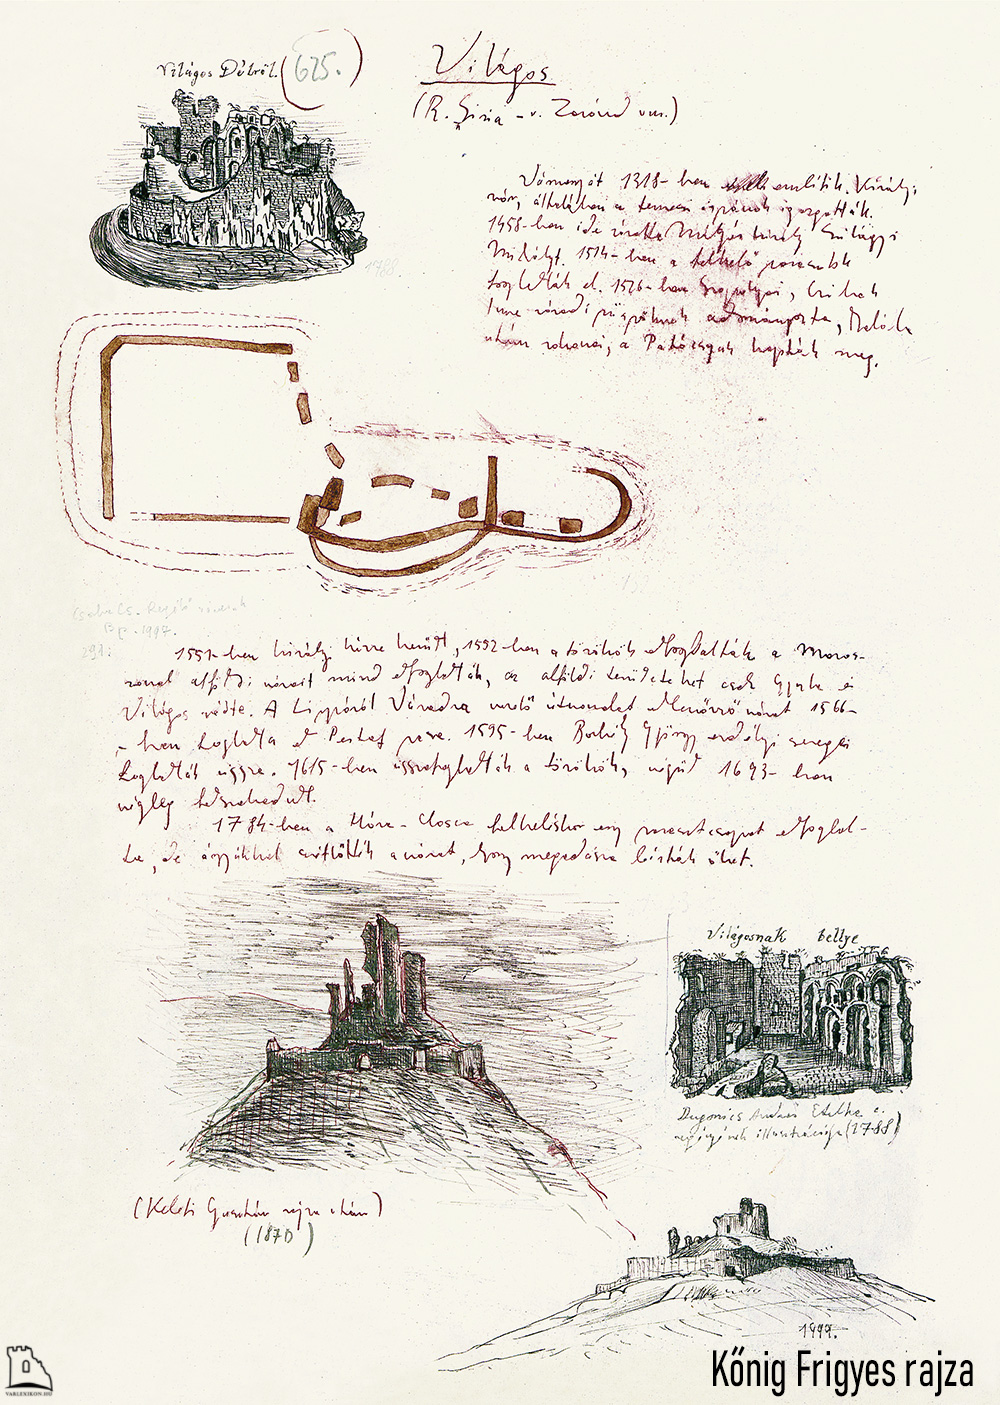 Világos Délről. (625.)
Világos
(R. Şiria - v. Zaránd vm.)
Várnagyát 1318-ban említik. Királyi
vár, általában a temesi ispánok igazgatták.
1458-ban ide záratta Mátyás király Szilágyi
Mihályt. 1514-ben a felkelő parasztok
foglalták el. 1526-ban Szapolyai, Czibak
Imre váradi püspöknek adományozta, Halála
után rokonai, a Patócsyak kapták meg.
1788.
Csaba Cs. Regélő váraink
Bp. 1997.
291.
1551-ben királyi kézre került, 1552-ben a törökök elfoglalták a Maros-
vonal alföldi várait mind elfoglalták, az alföldi területeket csak Gyula és
Világos védte. A Lippáról Váradra vezető útvonalat ellenőrző várat 1566-
-ban foglalta el Pertaf pasa. 1595-ben Borbély György erdélyi seregei
foglalták vissza. 1615-ben visszafoglalták a törökök, végül 1693-ban
végleg felszabadult.
1784-ben a Hóra-Closca felkeléskor egy parasztcsapat elfoglal-
ta, de ágyúkkal szétlőtték a várat, hogy megadásra bírják őket.
Világosnak bellye
Dugonics András Etelka c.
regényének illusztrációja (1788)
(Keleti Gusztáv rajza után)
(1870)
1999.
König Frigyes rajza
VARLEXIKON.HU